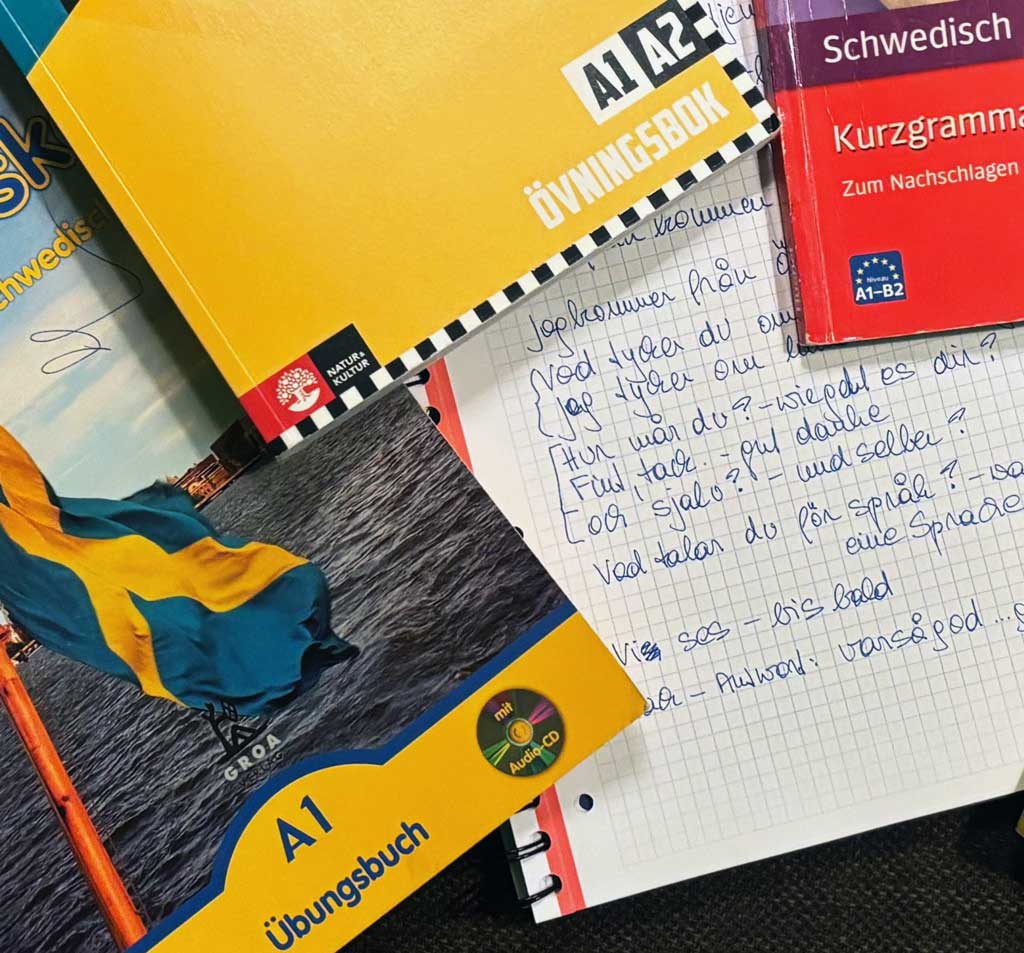 A1 A2
ÖVNINGSBOK
NATUR &
KULTUR
Schwedisch
Kurzgramma
Zum Nachschlagen
Niveau
A1–B2
gk
chwedisch
GROA
mit
Audio-CD
A1
Übungsbuch
kommen
Jag kommer från
Vad tycker du om
jag tycker om
Hur mår du? – wie geht es dir?
Fint, tack. – gut danke
och själv? – und selber?
Vad talar du för språk? – wa
eine Sprache
Vi ses – bis bald
– Antwort: varsågod...